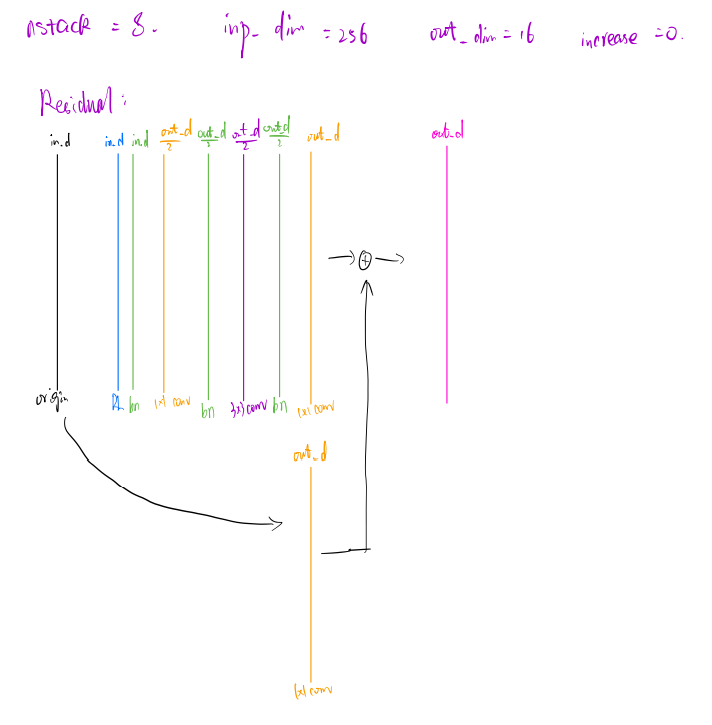 nstack = 8. inp_dim = 256 out_dim = 16 increase = 0.
Residual:
in_d in_d in_d out_d/2 out_d/2 out_d/2 out_d/2 out_d out_d
origin RL bn 1x1 conv bn 3x3 conv bn 1x1 conv
out_d
1x1 conv